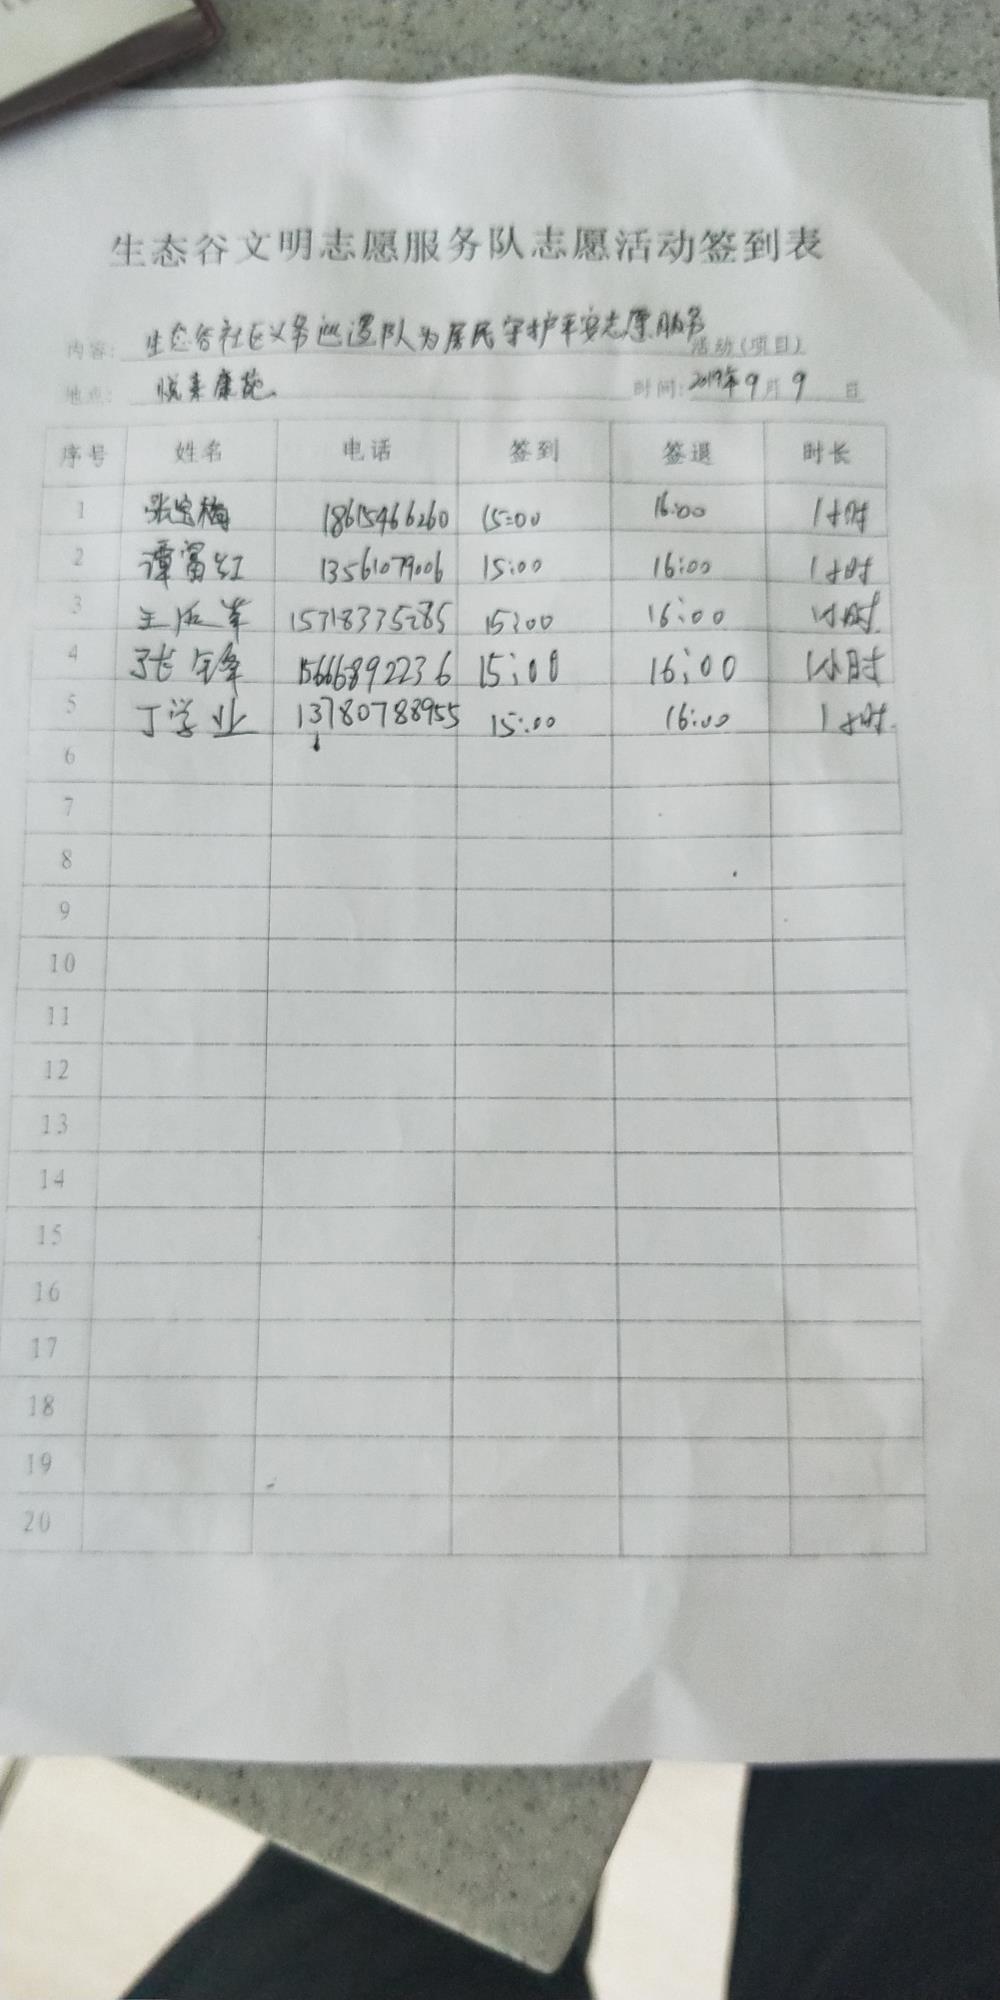 生态谷文明志愿服务队志愿活动签到表
内容: 生态谷社区义务巡逻队为居民守护平安志愿服务 活动(项目)
地点: 时间: 2019年9月9日
序号 姓名 电话 签到 签退 时长
1 张宝梅 18615466260 15:00 16:00 1小时
2 谭富红 13561079006 15:00 16:00 1小时
3 15318335285 15:00 16:00 1小时
4 张锋 15666892236 15:00 16:00 1小时
5 丁学业 13780788955 15:00 16:00 1小时
6
7
8
9
10
11
12
13
14
15
16
17
18
19
20